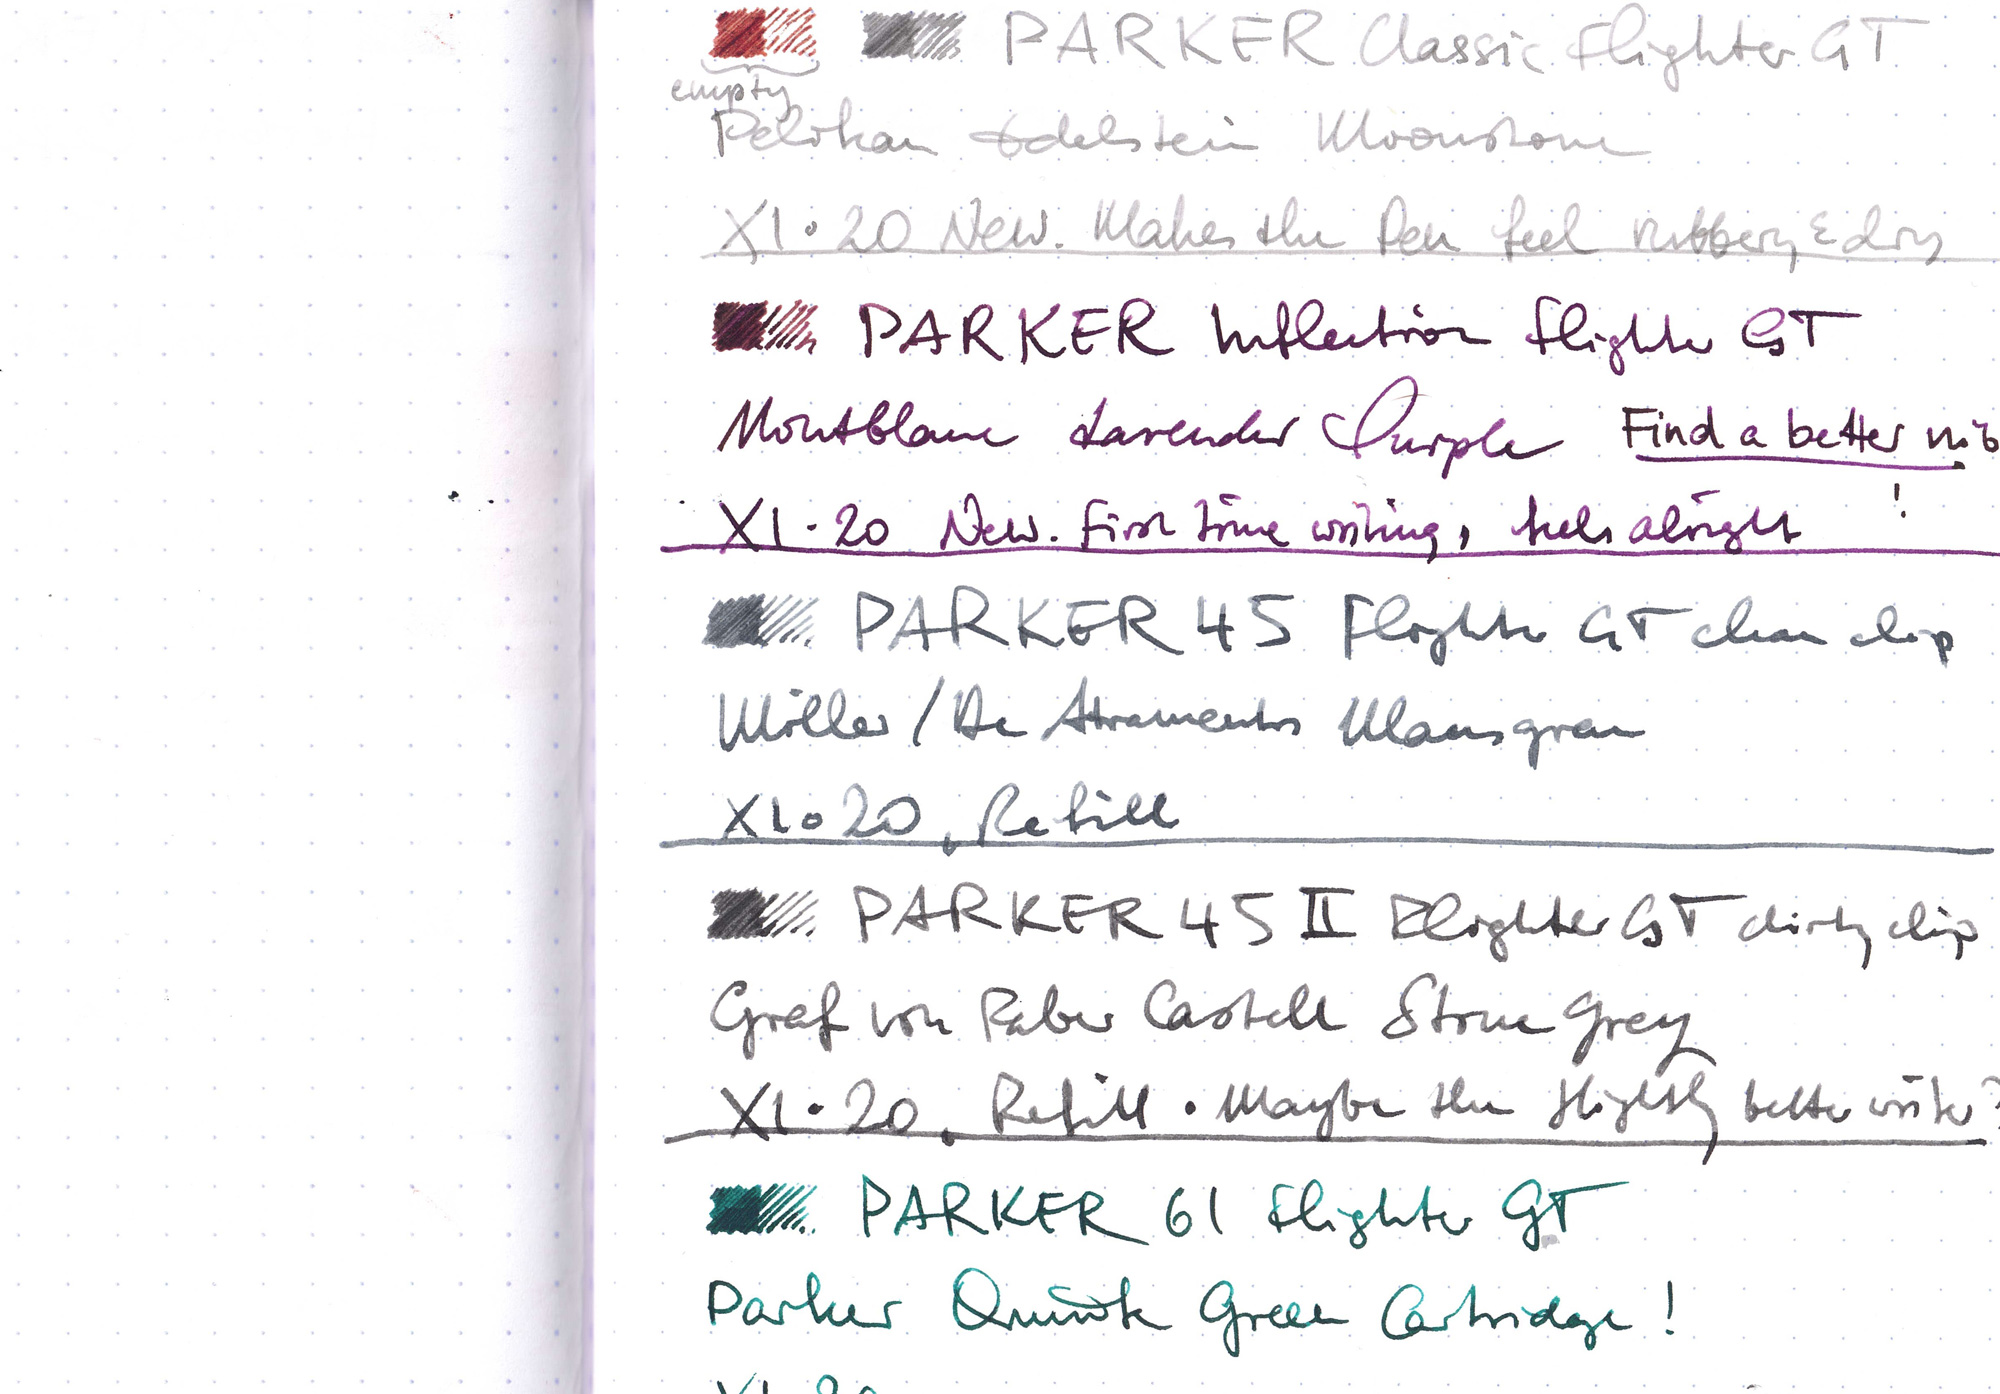 PARKER Classic Flighter GT
empty
Pelikan Edelstein Moonstone
XI·20 New. Makes the Pen feel rubbery & dry
PARKER Inflection Flighter GT
Montblanc Lavender Purple Find a better nib
!
XI·20 New. First time writing, feels alright
PARKER 45 Flighter GT clean clip
Möller / De Atramentis Mausgrau
XI·20, Refill
PARKER 45 II Flighter GT dirty clip
Graf von Faber Castell Stone Grey
XI·20, Refill · Maybe the slightly better writer?
PARKER 61 Flighter GT
Parker Quink Green Cartridge!
XI 20